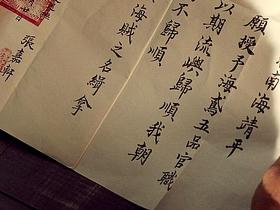 南海靖平
願授予海鳶五品官職
以期流嶼歸順我朝
不歸順
海賊之名緝拿
張嘉軒